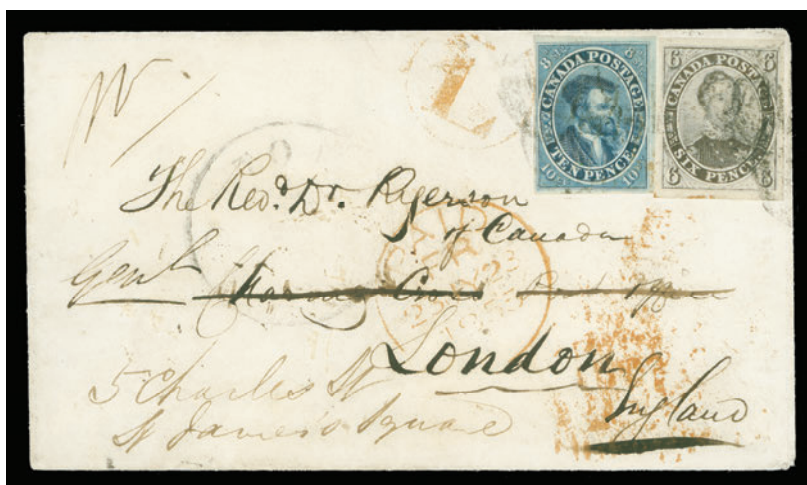 L
8 CANADA POSTAGE 6
TEN PENCE
10 10
6 CANADA POSTAGE 6
SIX PENCE
6 6
The Revd. Dr. Ryerson
of Canada
Charing Cross Post Office
London
England
5 Charles St
St James's Square
PAID